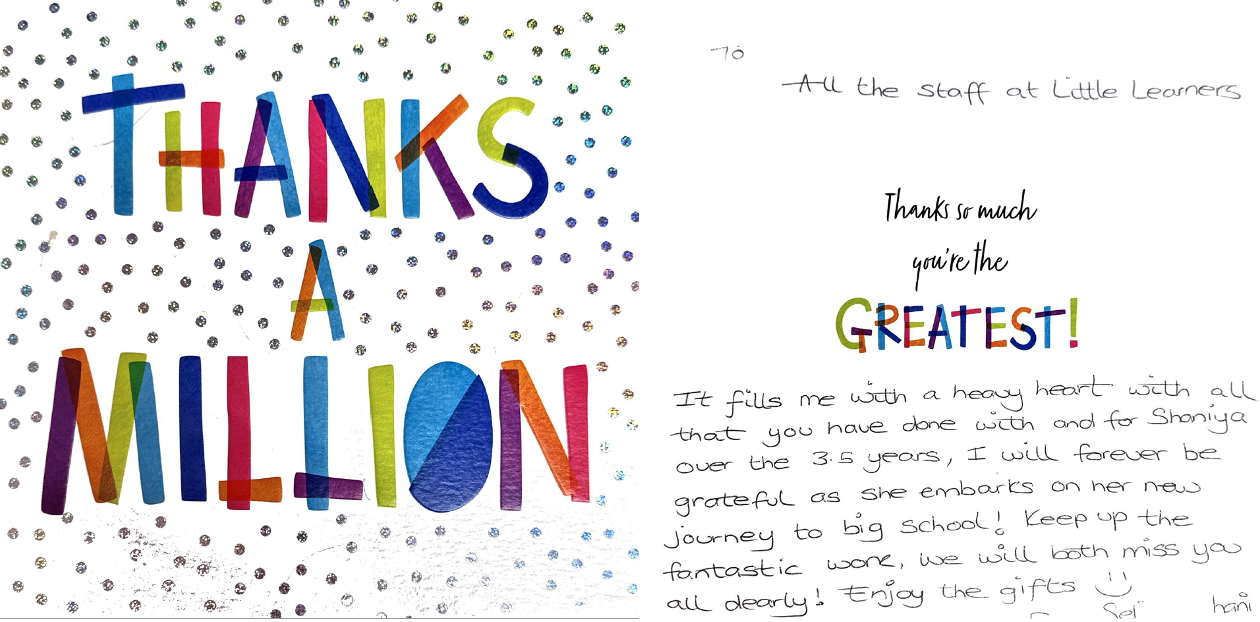 THANKS
A
MILLION
To
All the staff at Little Learners
Thanks so much
you're the
GREATEST!
It fills me with a heavy heart with all
that you have done with and for Shaniya
over the 3.5 years, I will forever be
grateful as she embarks on her new
journey to big school! Keep up the
fantastic work, we will both miss you
all dearly! Enjoy the gifts